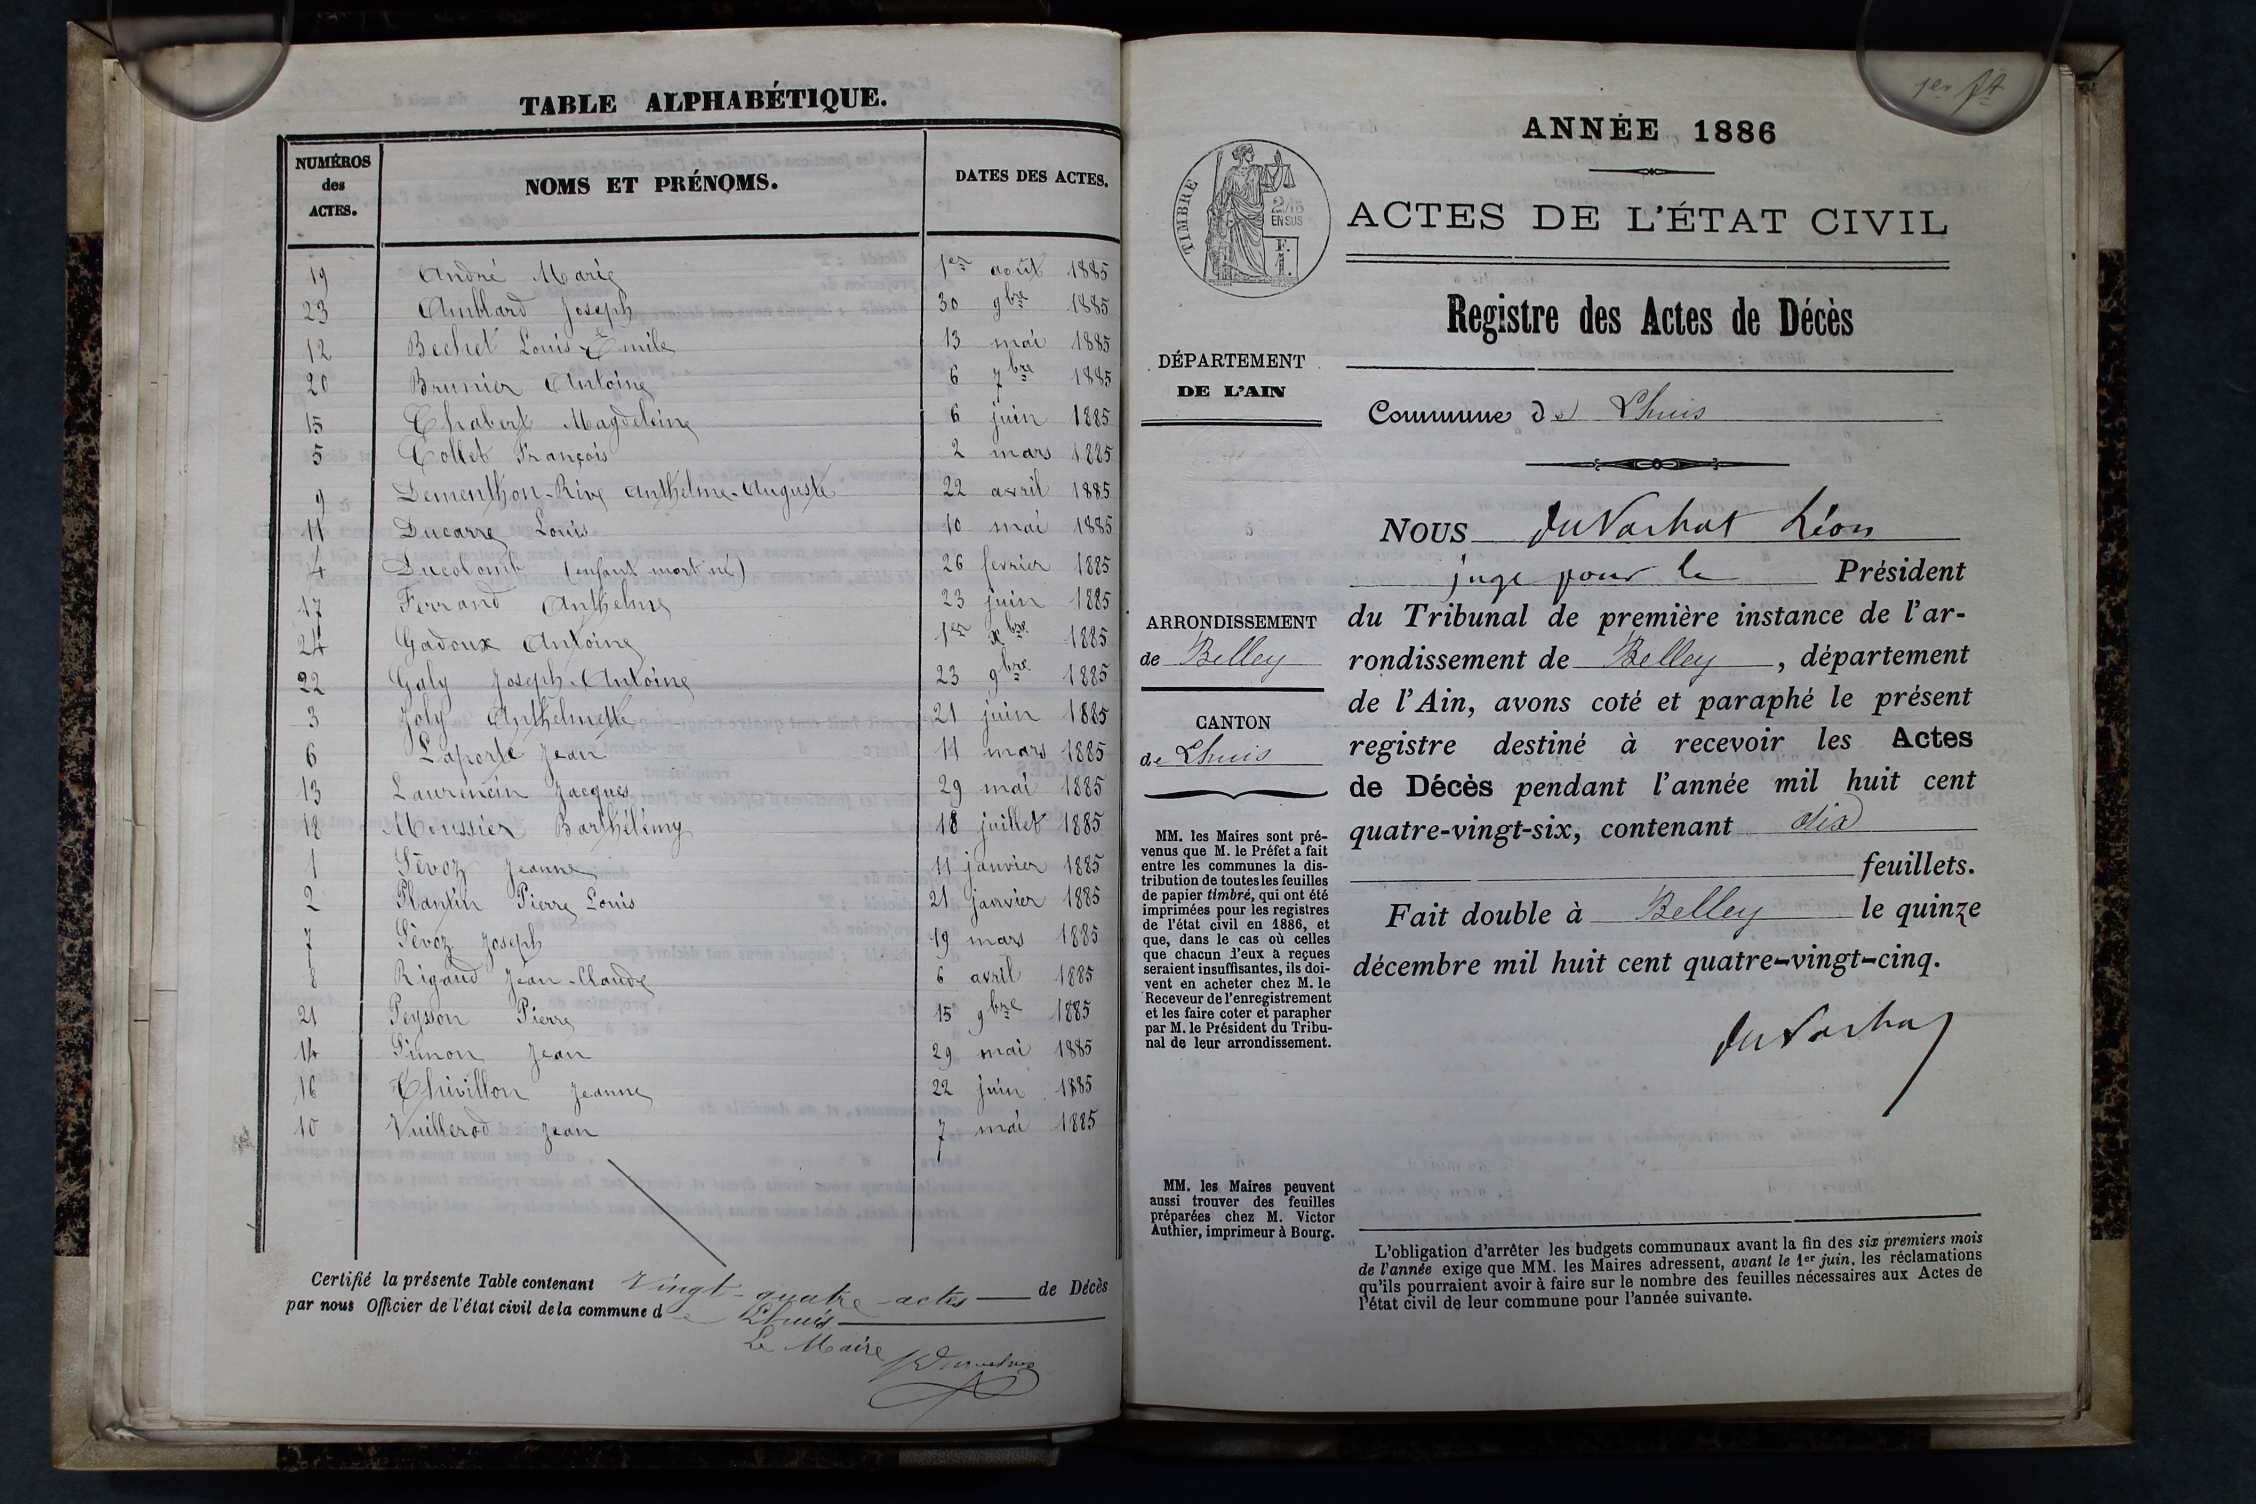 TABLE ALPHABÉTIQUE.
NUMÉROS des ACTES. NOMS ET PRÉNOMS. DATES DES ACTES.
19 André Marie 1er août 1885
23 Amblard Joseph 30 9bre 1885
12 Bechet Louis-Emile 13 mai 1885
20 Brunier Antoine 6 7bre 1885
15 Chabert Magdeleine 6 juin 1885
5 Collet François 2 mars 1885
9 Dementhon-Rive Anthelme-Auguste 22 avril 1885
11 Ducarre Louis 10 mai 1885
4 Ducolomb (enfant mort né) 26 fevrier 1885
17 Ferrand Anthelme 23 juin 1885
24 Gadoux Antoine 1er xbre 1885
22 Galy Joseph-Antoine 23 9bre 1885
3 Joly Anthelmette 21 juin 1885
6 Laporte Jean 11 mars 1885
13 Laurencin Jacques 29 mai 1885
18 Moussier Barthélémy 18 juillet 1885
1 Sèvoz Jeanne 11 janvier 1885
2 Plantin Pierre Louis 21 janvier 1885
7 Sèvoz Joseph 19 mars 1885
8 Rigaud Jean-Claude 6 avril 1885
21 Peysson Pierre 15 9bre 1885
14 Simon Jean 29 mai 1885
16 Thivillon Jeanne 22 juin 1885
10 Vuillerod Jean 7 mai 1885
Certifié la présente Table contenant Vingt-quatre actes de Décès
par nous Officier de l'état civil de la commune de Lhuis
Le Maire
1er
ANNÉE 1886
TIMBRE
2/10 EN SUS
F. 1.
ACTES DE L'ÉTAT CIVIL
Registre des Actes de Décès
DÉPARTEMENT
DE L'AIN
Commune de Lhuis
ARRONDISSEMENT
de Belley
CANTON
de Lhuis
MM. les Maires sont pré-
venus que M. le Préfet a fait
entre les communes la dis-
tribution de toutes les feuilles
de papier timbré, qui ont été
imprimées pour les registres
de l'état civil en 1886, et
que, dans le cas où celles
que chacun d'eux a reçues
seraient insuffisantes, ils doi-
vent en acheter chez M. le
Receveur de l'enregistrement
et les faire coter et parapher
par M. le Président du Tribu-
nal de leur arrondissement.
MM. les Maires peuvent
aussi trouver des feuilles
préparées chez M. Victor
Authier, imprimeur à Bourg.
NOUS du Vachat Léon
juge pour le Président
du Tribunal de première instance de l'ar-
rondissement de Belley, département
de l'Ain, avons coté et paraphé le présent
registre destiné à recevoir les Actes
de Décès pendant l'année mil huit cent
quatre-vingt-six, contenant dix
feuillets.
Fait double à Belley le quinze
décembre mil huit cent quatre-vingt-cinq.
du Vachat
L'obligation d'arrêter les budgets communaux avant la fin des six premiers mois
de l'année exige que MM. les Maires adressent, avant le 1er juin, les réclamations
qu'ils pourraient avoir à faire sur le nombre des feuilles nécessaires aux Actes de
l'état civil de leur commune pour l'année suivante.